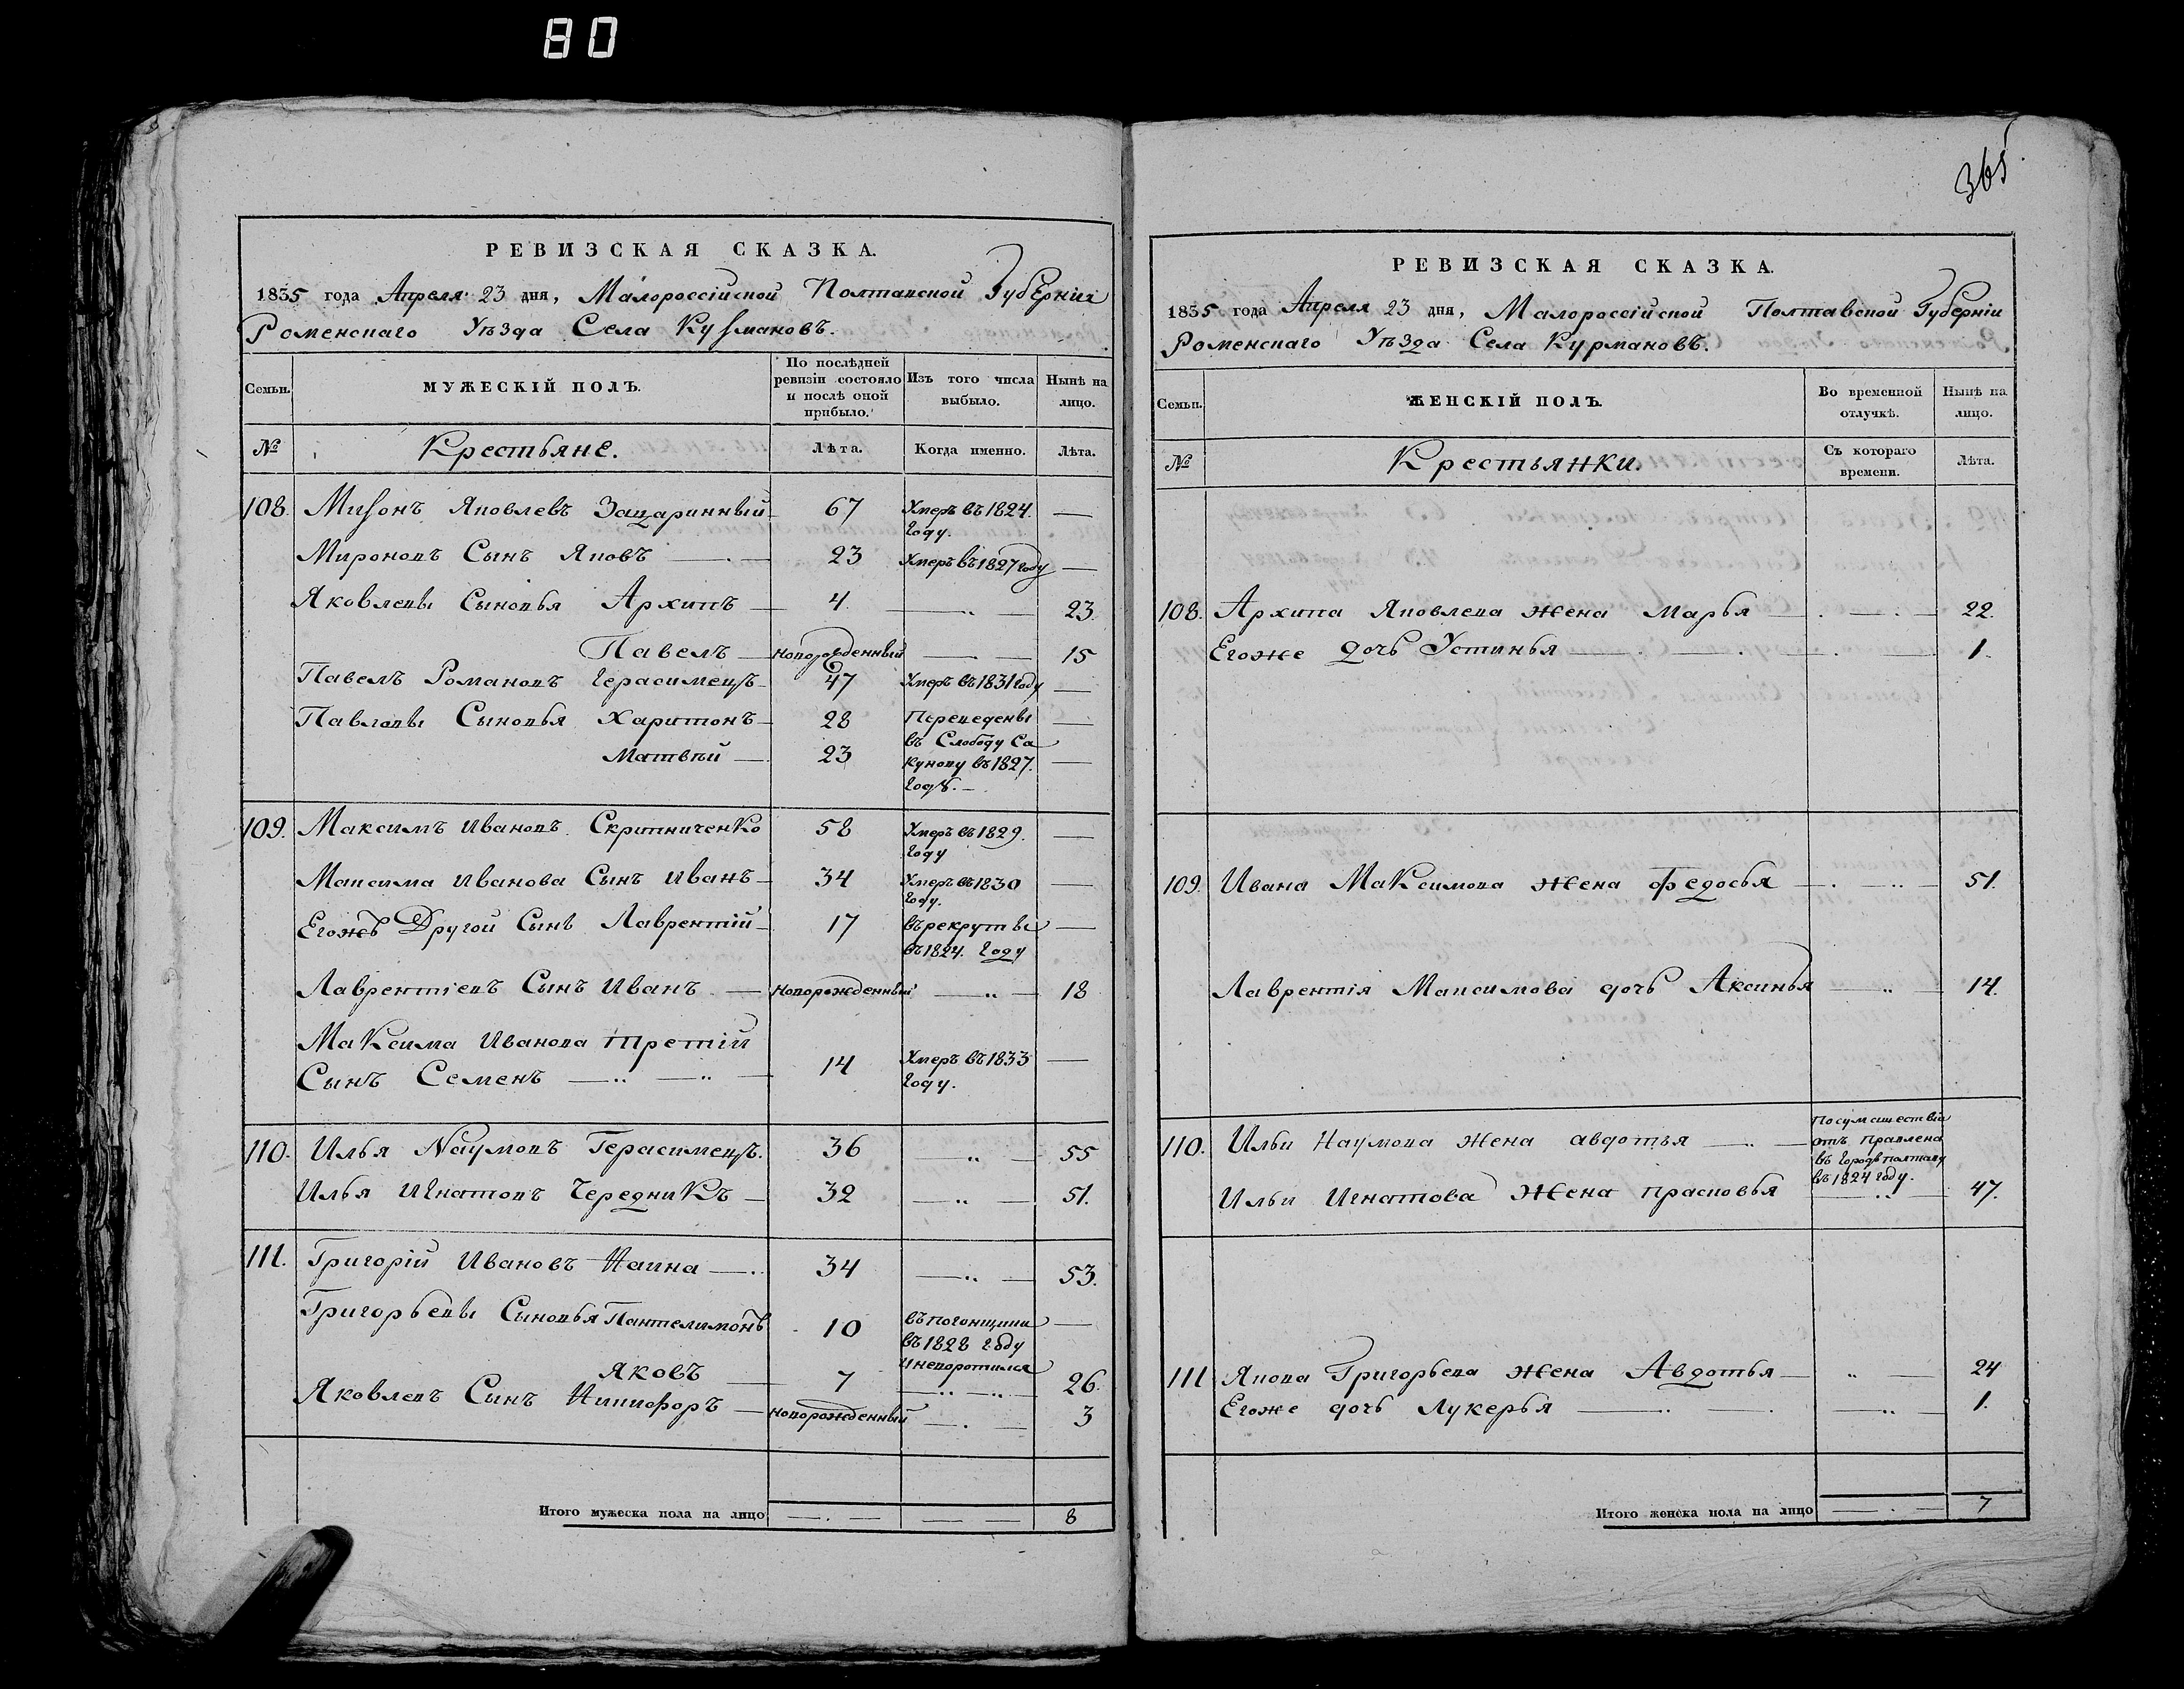 80
365
РЕВИЗСКАЯ СКАЗКА.
1835 года Апреля 23 дня, Малороссійской Полтавской Губерніи
Роменскаго Уѣзда Села Курмановъ.
Семьи.
МУЖЕСКІЙ ПОЛЪ.
По послѣдней ревизіи состояло и послѣ оной прибыло.
Изъ того числа выбыло.
Нынѣ на лицо.
№ Крестьяне. Лѣта. Когда именно. Лѣта.
108. Миронъ Яковлевъ Зацаринный 67 Умеръ въ 1824. году. —
Мироновъ Сынъ Яковъ — 23 Умеръ въ 1827 году —
Яковлевы Сыновья Архипъ — 4 — 23.
Павелъ — новорожденный — 15
Павелъ Романовъ Герасимецъ 47 Умеръ въ 1831 году —
Павловы Сыновья Харитонъ 28 Переведены —
въ Слободу Са
Матвѣй — 23 кунову въ 1827. —
годѣ. —
109. Максимъ Ивановъ Скрипниченко 58 Умеръ въ 1829. году —
Максима Иванова Сынъ Иванъ 34 Умеръ въ 1830 году. —
Егожъ Другой Сынъ Лаврентій 17 въ рекруты —
въ 1824. году
Лаврентіевъ Сынъ Иванъ — новорожденный — 18
Максима Иванова третій
Сынъ Семенъ — 14 Умеръ въ 1833 году. —
110. Илья Наумовъ Герасимецъ. 36 — 55
Илья Игнатовъ Чередникъ — 32 — 51.
111. Григорій Ивановъ — 34 — 53.
Григорьевы Сыновья Пантелимонъ 10 въ погонщики —
въ 1828 году
и неворотился
Яковъ — 7 — 26.
Яковлевъ Сынъ Никифоръ — новорожденный — 3
Итого мужеска пола на лицо — — 8
РЕВИЗСКАЯ СКАЗКА.
1835 года Апреля 23 дня, Малороссійской Полтавской Губерніи
Роменскаго Уѣзда Села Курмановъ.
Семьи.
ЖЕНСКІЙ ПОЛЪ.
Во временной отлучкѣ.
Нынѣ на лицо.
№ Крестьянки. Съ котораго времени. Лѣта.
108. Архипа Яковлева жена Марья — 22.
Егоже дочь Устинья — 1.
109. Ивана Максимова жена Федосья — 51.
Лаврентія Максимова дочь Аксинья — 14.
110. Ильи Наумова жена авдотья — Посумашествію
отъ правлена
въ городъ полтаву
въ 1824 году.
Ильи Игнатова жена прасковья — 47.
111 Якова Григорьева жена Авдотья — 24
Егоже дочь Лукерья — 1.
Итого женска пола на лицо — 7